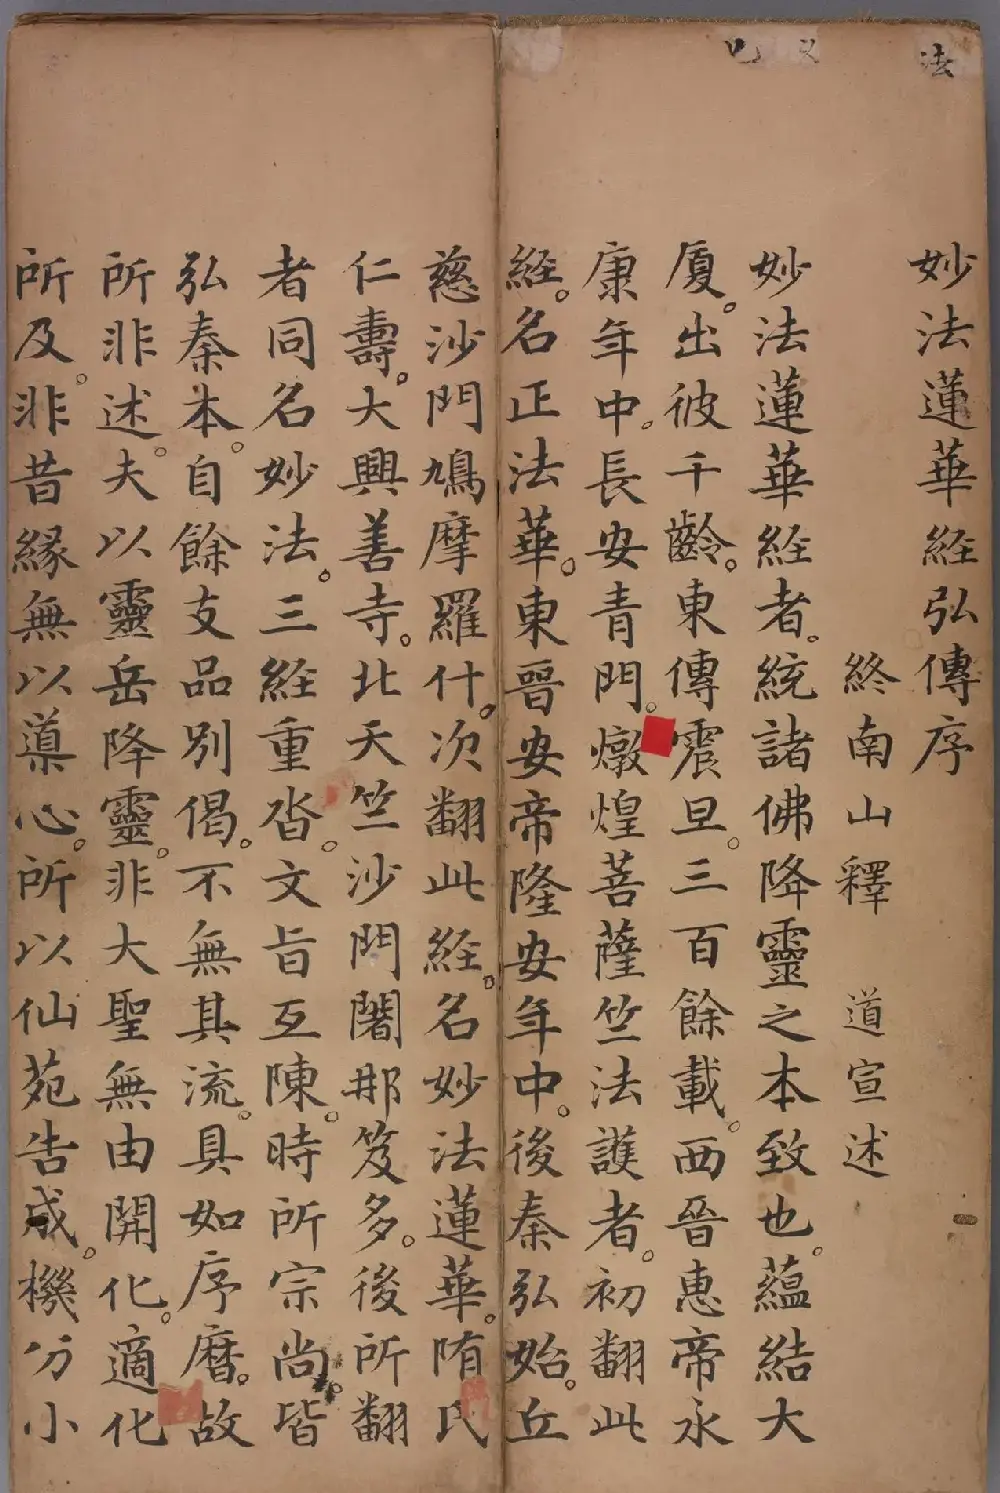 法
妙法蓮華経弘傳序
終南山釋 道宣述
妙法蓮華経者。統諸佛降靈之本致也。蘊結大
厦。出彼千齡。東傳震旦。三百餘載。西晉惠帝永
康年中。長安青門。燉煌菩薩竺法護者。初翻此
経。名正法華。東晉安帝隆安年中。後秦弘始。丘
慈沙門鳩摩羅什。次翻此経。名妙法蓮華。隋氏
仁壽。大興善寺。北天竺沙門闍那笈多。後所翻
者同名妙法。三経重沓。文旨互陳。時所宗尚。皆
弘秦本。自餘支品別偈。不無其流。具如序暦。故
所非述。夫以靈岳降靈。非大聖無由開化。適化
所及。非昔縁無以導心。所以仙苑告成。機分小